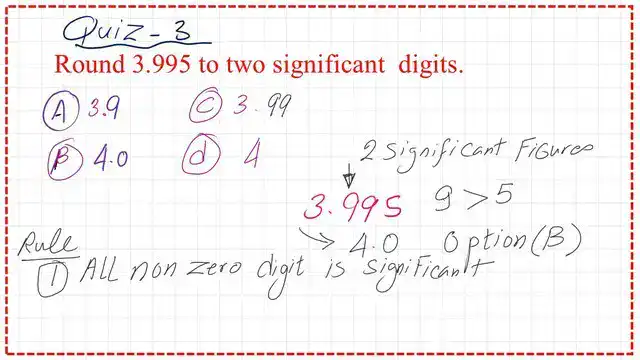 Quiz-3
Round 3.995 to two significant digits.
A 3.9 C 3.99
B 4.0 d 4
2 Significant Figures
3.995 9 > 5
4.0 Option (B)
Rule
1 ALL non zero digit is significant